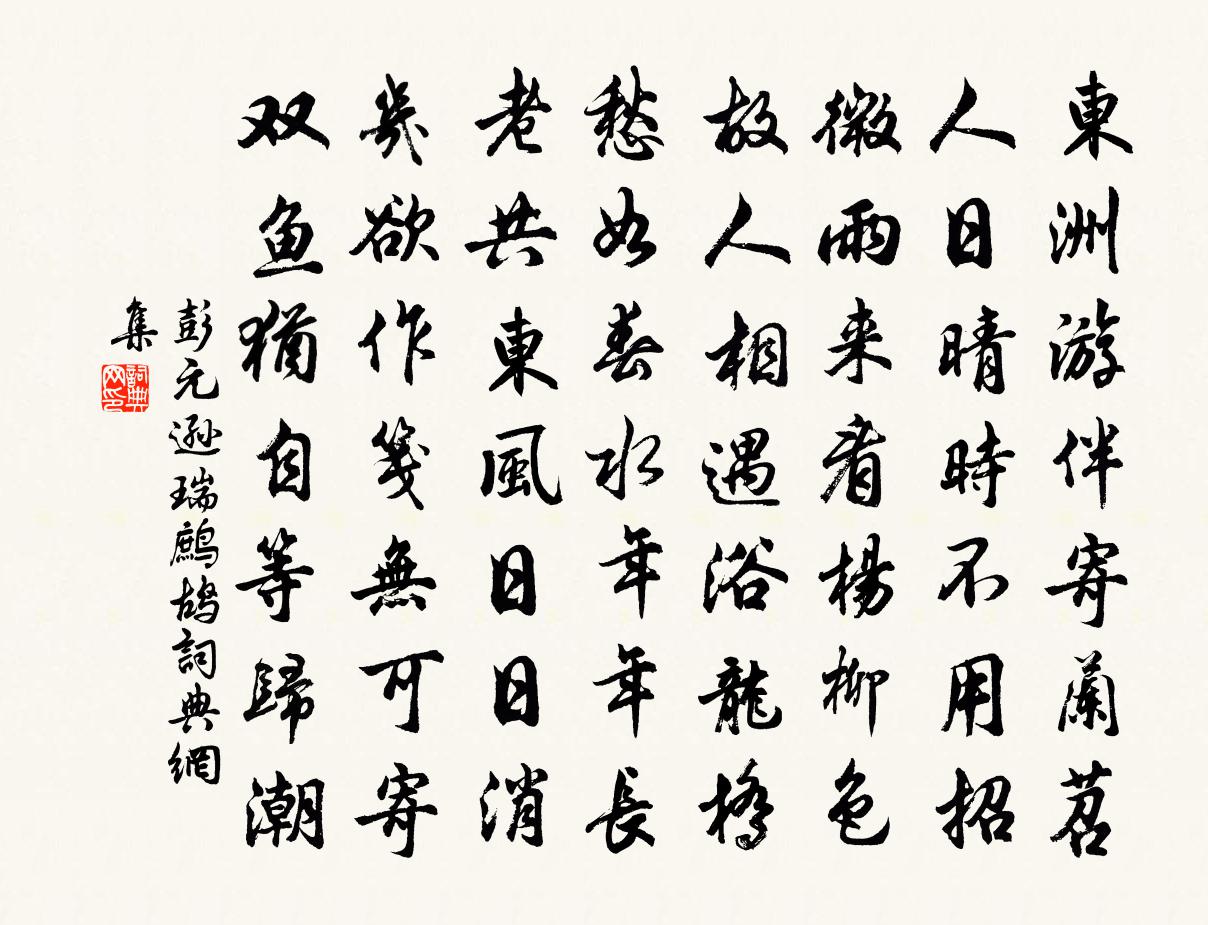 東洲游伴寄蘭苕
人日晴時不用招
微雨来看楊柳色
故人相遇浴龍橋
愁如春水年年長
老共東風日日消
幾欲作箋無可寄
双魚猶自等歸潮
彭元遜瑞鷓鴣詞典網
集
詞典
网印